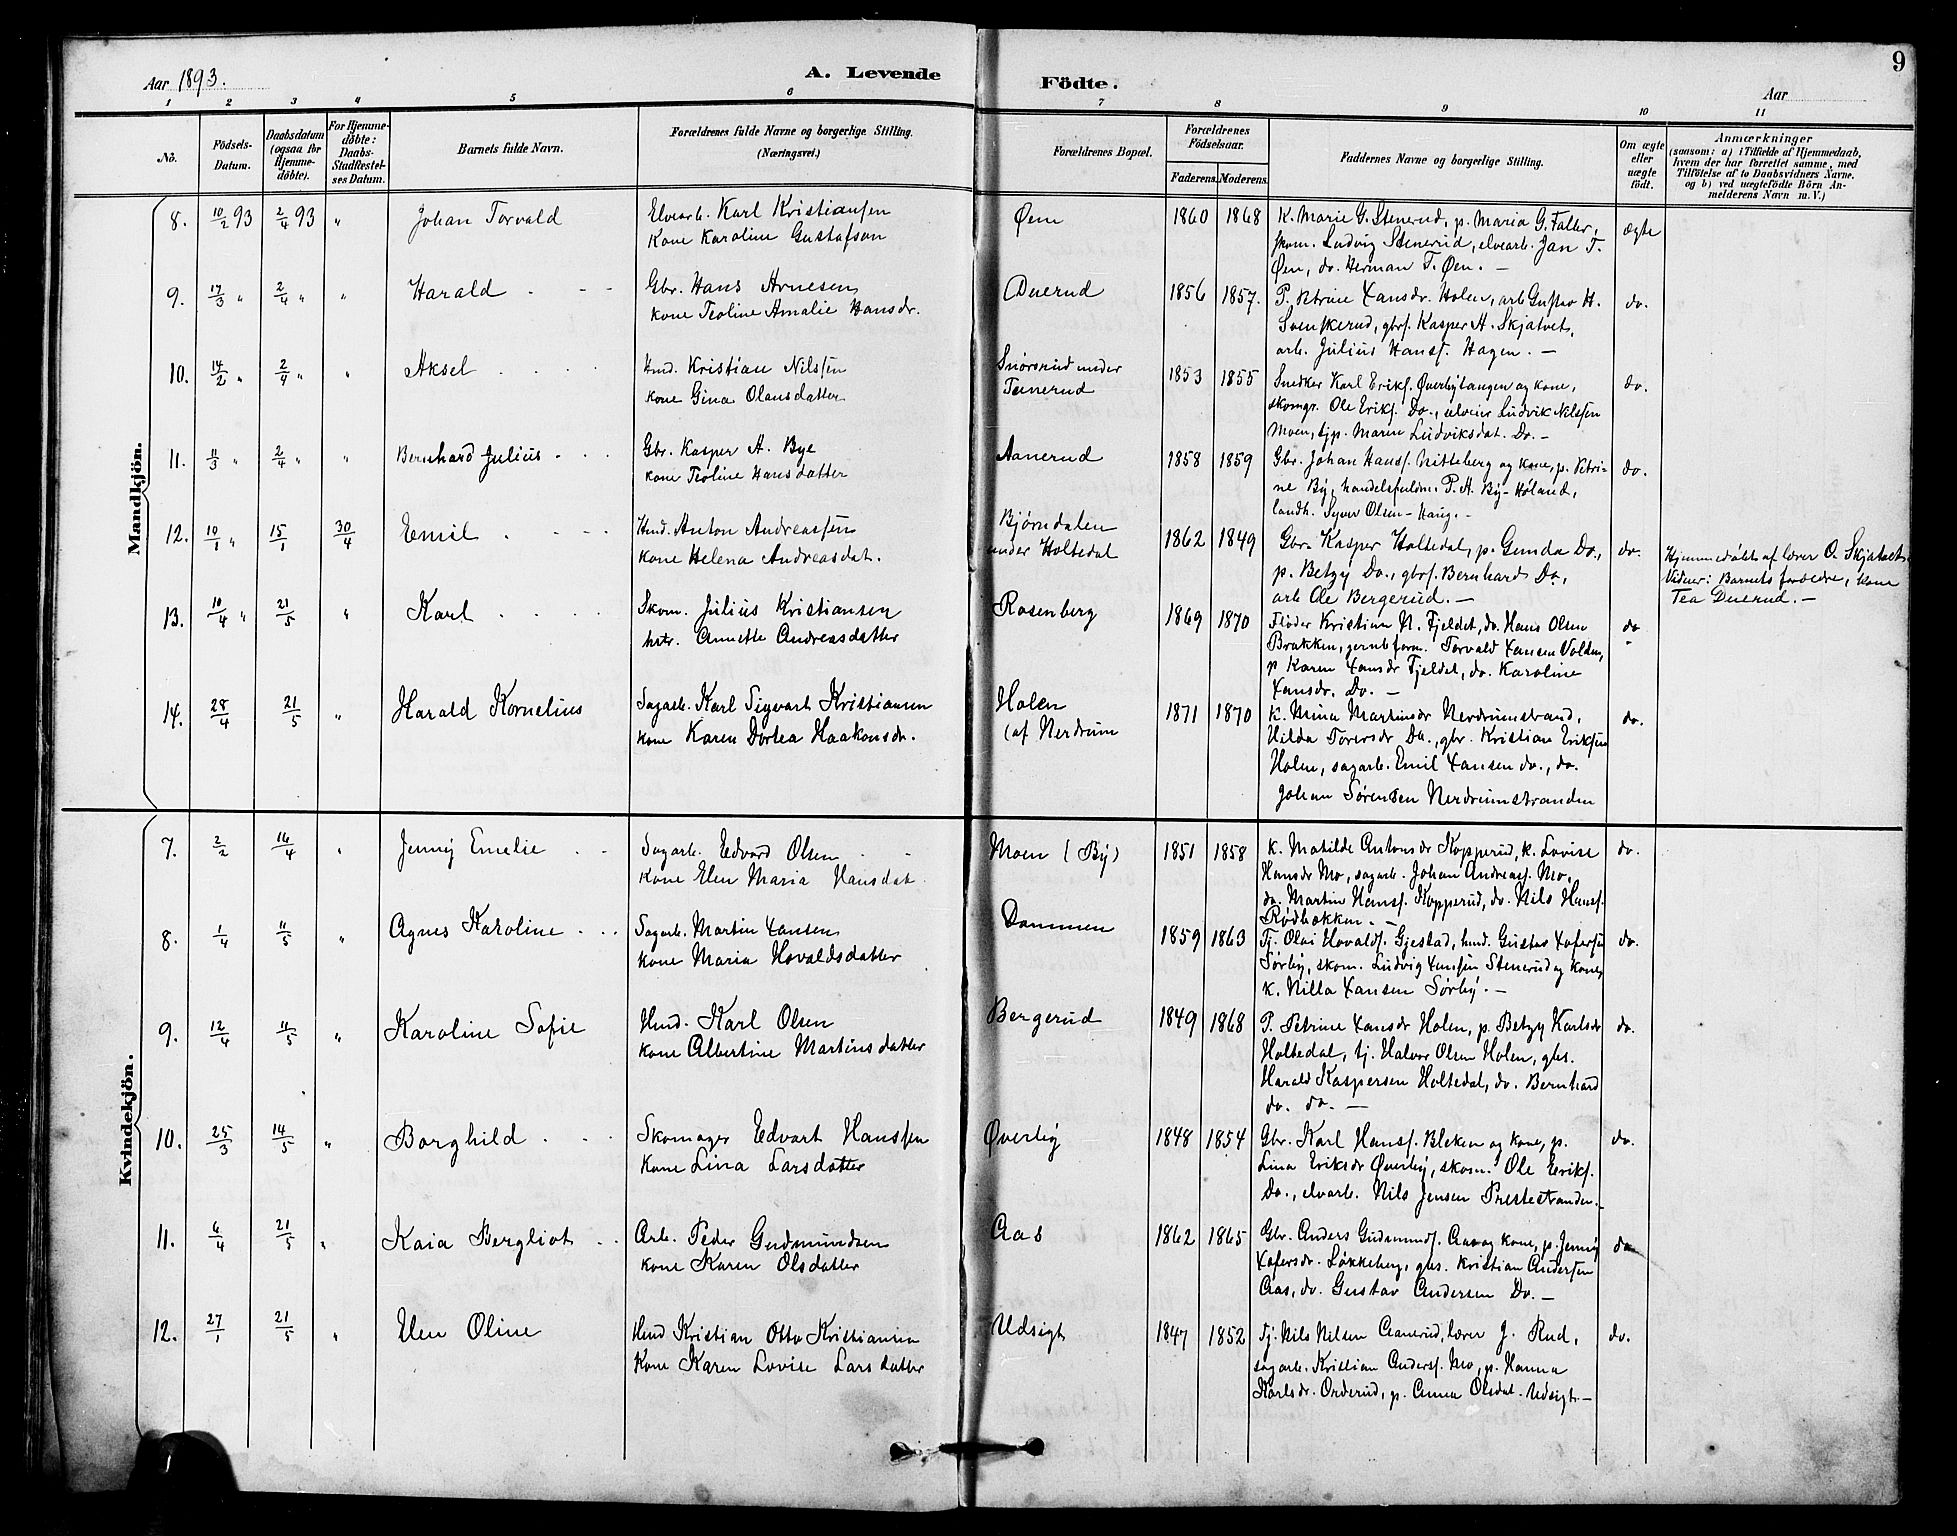 9
Aar 1893.
A. Levende
Födte.
Aar
1 2 3 4 5 6 7 8 9 10 11
No.
Födsels-
Datum.
Daabsdatum
(ogsaa for
Hjemme-
döbte).
For Hjemme-
döbte:
Daabs-
Stadfæstel-
ses Datum.
Barnets fulde Navn.
Forældrenes fulde Navne og borgerlige Stilling.
(Næringsvei.)
Forældrenes Bopæl.
Forældrenes
Födselsaar.
Faderens. Moderens.
Faddernes Navne og borgerlige Stilling.
Om ægte
eller
uægte
födt.
Anmærkninger
(saasom: a) i Tilfælde af Hjemmedaab,
hvem der har forrettet samme, med
Tilföielse af to Daabsvidners Navne.
og b) ved uægtefödte Börn An-
melderens Navn m. V.)
Mandkjön.
8. 10/2 93 2/4 93 " Johan Torvald
Elvearb. Karl Kristiansen
Kone Karoline Gustafson
Øen
1860 1868
K. Marie G. Stenerud, p. Maria G. Faller,
skom. Ludvig Stenerud, elvearb. Jan T.
Øen, do. Herman T. Øen. —
ægte
9. 17/3 " 2/4 " " Harald
Gbr. Hans Arnesen
kone Teoline Amalie Hansdr.
Duerud
1856 1857.
P. Petrine Jansdr. Holen, arb Gustav H.
Svenskerud, gbrs. Kasper A. Skjatvet,
arb. Julius Hanss. Hagen. —
do.
10. 14/2 " 2/4 " " Aksel
Hmd. Kristian Nilssen
kone Gina Olausdatter
Snørsrud under
Tunerud
1853 1855
Snedker Karl Eriks. Øverbytangen og kone,
skomgr. Ole Eriks. Do., selveier Ludvik Nilssen
Moen, tjp. Maren Ludviksdat. Do. —
do.
11. 11/3 " 2/4 " " Bernhard Julius
Gbr. Kasper A. Bye
kone Teoline Hansdatter
Aanerud
1858 1859
Gbr. Johan Hanss. Nitteberg og kone, p. Petri-
ne By, handelsfuldm. P. A. By - Høland,
landh. Syver Olsen - Haug. —
do.
12. 10/1 " 15/1 30/4 Emil
Hmd. Anton Andreassen
kone Helena Andreasdat.
Bjørndalen
under Holtedal
1862 1849
Gbr. Kasper Holtedal, p. Gunda Do.,
p. Betzy Do., gbrs. Bernhard Do,
arb Ole Bergerud. —
do.
Hjemmedøbt af lærer O. Skjatvet.
Vidner: Barnets forældre, kone
Tea Duerud. —
13. 10/4 " 21/5 " Karl
Skom. Julius Kristiansen
hstr. Annette Andreasdatter
Rosenberg
1869 1870
Fløder Kristian N. Fjeldet, do. Hans Olsen
Brakken, Torvald Jansen Volden,
p Karen Jansdr Fjeldet, do. Karoline
Jansdr. Do. —
do
14. 28/4 21/5 " Harald Kornelius
Sagarb. Karl Sigvart Kristiansen
kone Karen Dortea Haakonsdr.
Holen
(af Nerdrum
1871 1870
K. Mina Martinsdr Nerdrumstrand,
Hilda Torersdr Do., gbr. Kristian Eriksen
Holen, sagarb. Emil Jansen do., do.
Johan Sørensen Nerdrumstranden
do.
Kvindekjön.
7. 2/2 16/4 " Jenny Emelie
Sagarb. Edvard Olsen
kone Elen Maria Hansdat.
Moen (By)
1851 1858
K. Matilde Antonsdr Kopperud, k. Lovise
Hansdr Mo, sagarb. Johan Andreass. Mo,
do. Martin Hanss. Kopperud, do. Nils Hanss.
Rødbakken. —
do.
8. 1/4 11/5 " Agnes Karoline
Sagarb. Martin Jansen
kone Maria Hovaldsdatter
Dammen
1859 1863
Tj. Olai Hovalds. Gjestad, hmd. Gustav Jofersen
Sørby, skom. Ludvig Jansen Stenerud og kone,
k. Nilla Jansen Sørby. —
do.
9. 12/4 11/5 " Karoline Sofie
Hmd. Karl Olsen
kone Albertine Martinsdatter
Bergerud
1849 1868
P. Petrine Jansdr Holen, p. Betzy Karlsdr
Holtedal, tj. Halvor Olsen Holen, gbs.
Harald Kaspersen Holtedal, do. Bernhard
do. do. —
do.
10. 25/3 14/5 " Borghild
Skomager Edvart Hanssen
kone Lina Larsdatter
Øverby
1848 1854
Gbr. Karl Hanss. Bleken og kone, p.
Lina Eriksdr Øverby, skom. Ole Eriks.
Do., elvarb. Nils Jensen Prestestranden. —
do.
11. 6/4 21/5 " Kaia Bergliot
Arb. Peder Gudmundsen
kone Karen Olsdatter
Aas
1862 1865
Gbr. Anders Gudmunds. Aas og kone, p. Jenny
Jofersdr. Løkkeberg, gbs. Kristian Andersen
Aas, do. Gustav Andersen Do. —
do
12. 27/1 21/5 " Elen Oline
Hmd Kristian Otto Kristiansen
Kone Karen Lovise Larsdatter
Udsigt
1847 1852
Tj. Nils Nilsen Aanerud, lærer J. Rud,
sagarb. Kristian Anderss. Mo, p. Hanna
Karlsdr. Orderud, p. Anna Olsdat. Udsigt —
do.